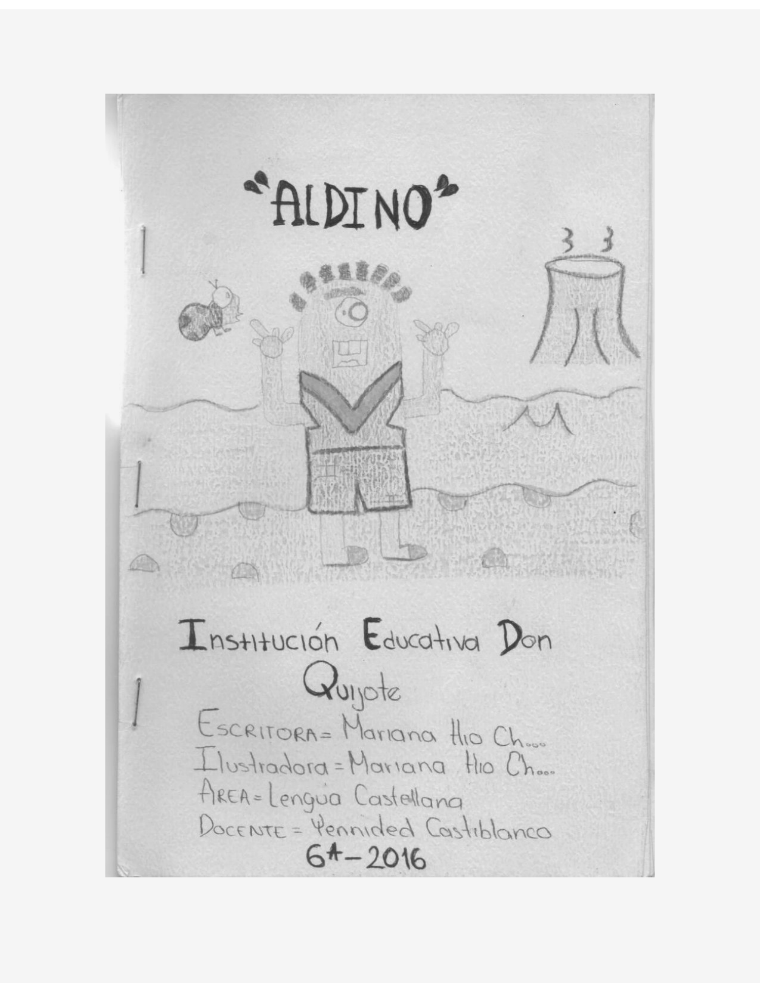 "ALDINO"
Institución Educativa Don
Quijote
ESCRITORA= Mariana Hio Ch...
Ilustradora = Mariana Hio Ch...
AREA= Lengua Castellana
DOCENTE = Yennided Castiblanco
6A-2016